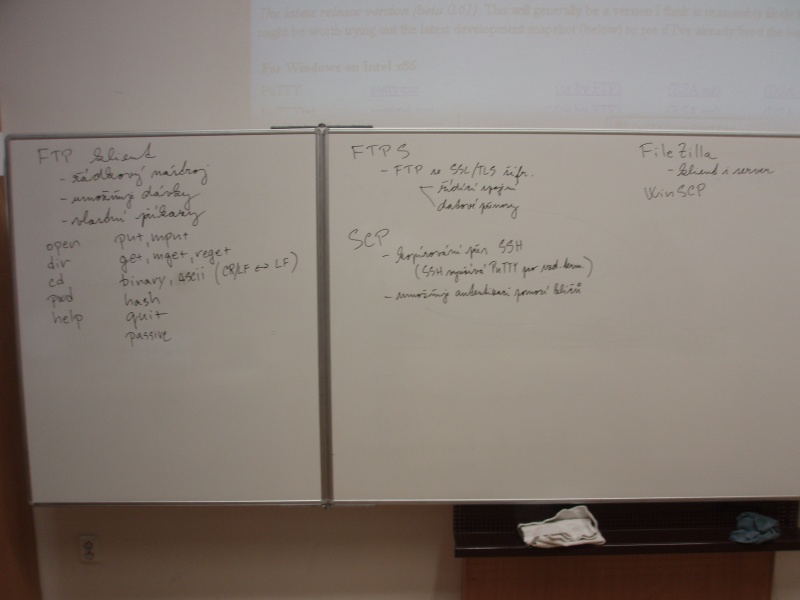 The latest release version (beta 0.61). This will generally be a version I think is reasonably likely
might be worth trying out the latest development snapshot (below) to see if I've already fixed the
For Windows on Intel x86
PuTTY
FTP klient
- řádkový nástroj
- umožňuje dávky
- vlastní příkazy
open put, mput
dir get, mget, reget
cd binary, ascii (CR/LF ↔ LF)
pwd hash
help quit
passive
FTPS
- FTP se SSL/TLS šifr.
řídící spojení
datové přenosy
SCP
- kopírování přes SSH
(SSH využívá PuTTY pro vzd. term.)
- umožňuje autentizaci pomocí klíčů
FileZilla
- klient i server
WinSCP